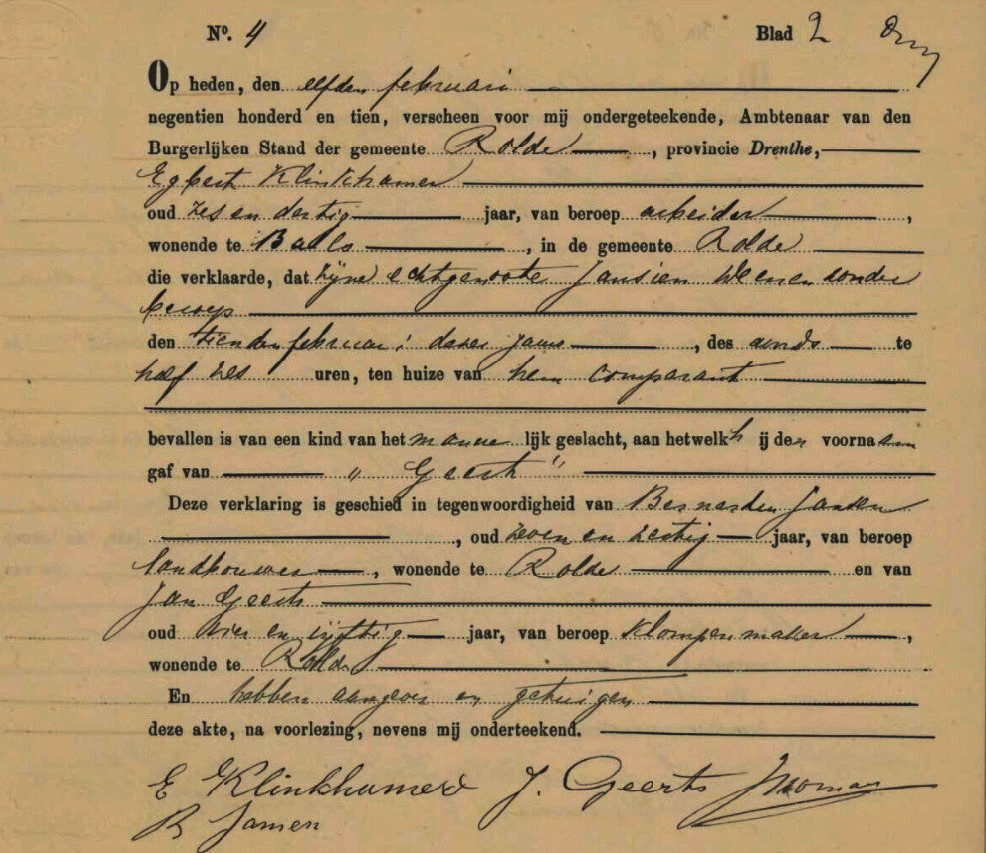 No. 4 Blad 2
Op heden, den elfden februari
negentien honderd en tien, verscheen voor mij ondergeteekende, Ambtenaar van den
Burgerlijken Stand der gemeente Rolde, provincie Drenthe,
Egbert Klinkhamer
oud zes en dertig jaar, van beroep arbeider,
wonende te Balo, in de gemeente Rolde
die verklaarde, dat zijne echtgenoote Jansien Weenen zonder
beroep
den tienden februari dezes jaars, des avonds te
half zes uren, ten huize van hem comparant
bevallen is van een kind van het manne lijk geslacht, aan hetwelk hij den voornaam
gaf van „Geert"
Deze verklaring is geschied in tegenwoordigheid van Berend Jansen
, oud zeven en zestig jaar, van beroep
landbouwer, wonende te Rolde en van
Jan Geerts
oud vier en vijftig jaar, van beroep klompenmaker,
wonende te Rolde
En hebben aangever en getuigen
deze akte, na voorlezing, nevens mij onderteekend.
E Klinkhamer J. Geerts
B Jansen